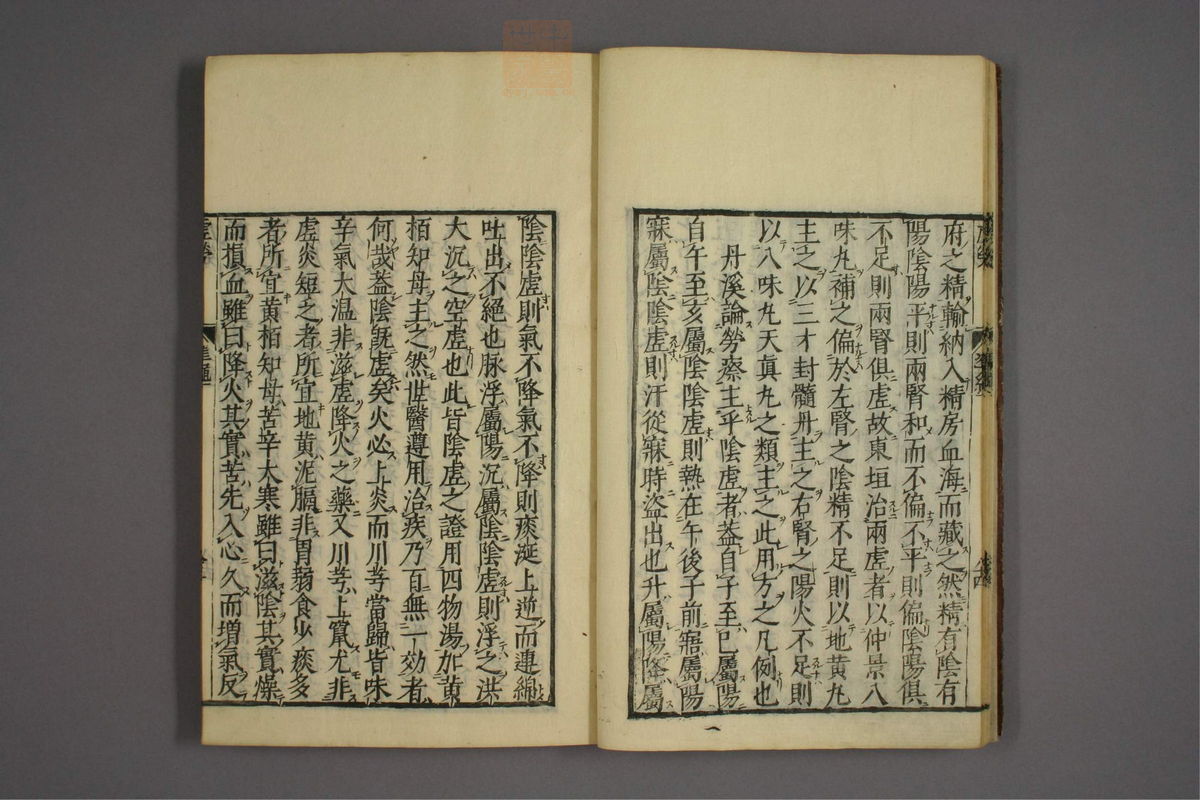 府之精輸納入精房血海而藏之然精有陰有
陽陰陽平則兩腎和而不偏不平則偏陰陽俱
不足則兩腎俱虚故東垣治兩虚者以仲景八
味丸補之偏於左腎之陰精不足則以地黄丸
主之以三才封髓丹主之右腎之陽火不足則
以八味丸天真丸之類主之此用方之凡例也
丹溪論勞瘵主乎陰虚者蓋自子至巳屬陽
自午至亥屬陰陰虚則熱在午後子前寤屬陽
寐屬陰陰虚則汗從寐時盗出也升屬陽降屬
陰陰虚則氣不降氣不降則痰涎上逆而連綿
吐出不絶也脉浮屬陽沉屬陰陰虚則浮之洪
大沉之空虚也此皆陰虚之證用四物湯加黄
栢知母主之然世醫遵用治疾乃百無一効者
何哉蓋陰既虚矣火必上炎而川芎當歸皆味
辛氣大温非滋虚降火之藥又川芎上竄尤非
虚炎短乏者所宜地黄泥膈非胃弱食少痰多
者所宜黄栢知母苦辛大寒雖曰滋陰其實燥
而損血雖曰降火其實苦先入心久而増氣反